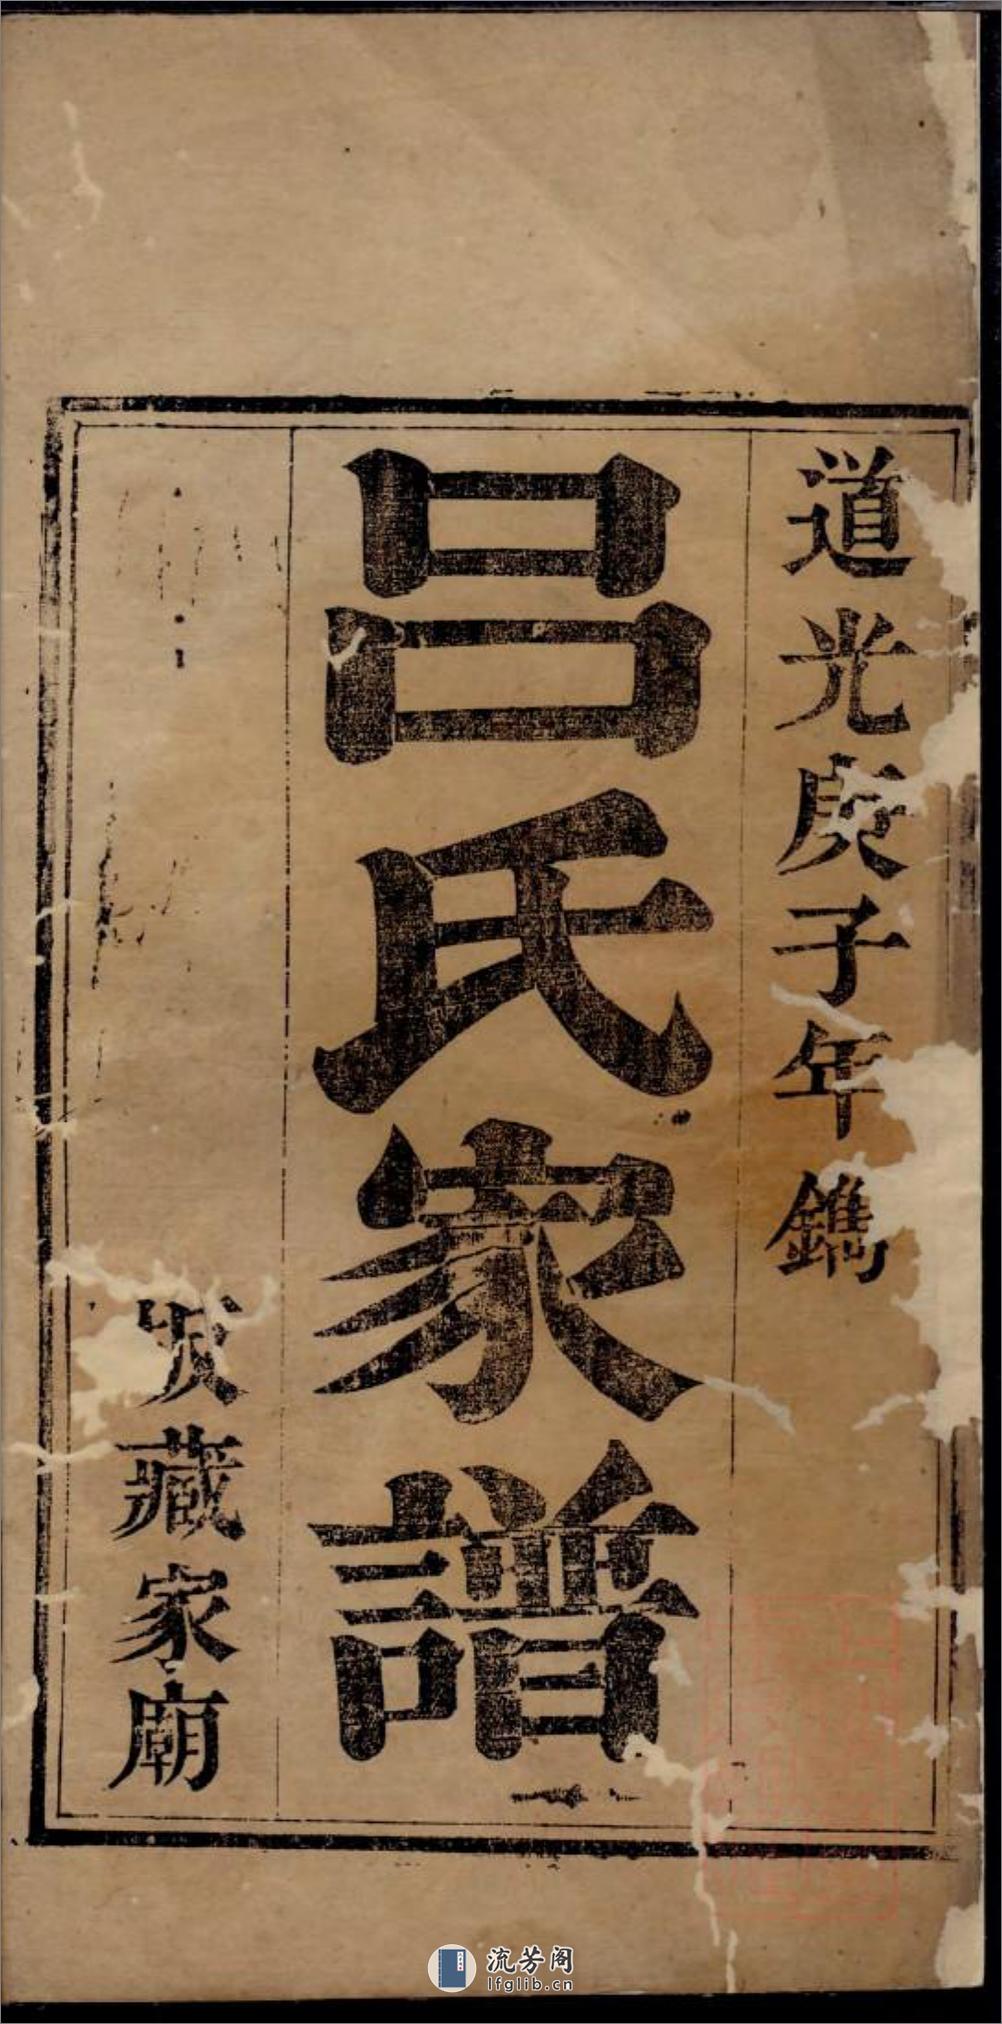 道光庚子年鐫
呂氏家譜
藏家廟
流芳阁
lfglib.cn